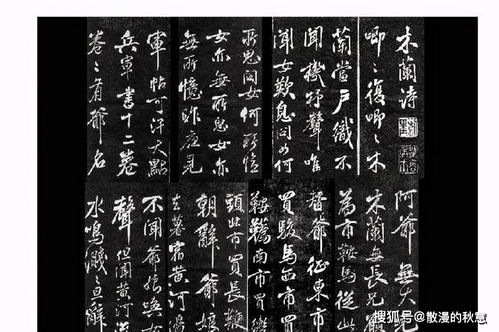 木蘭詩
唧唧復唧唧木
蘭當戶織不
聞機杼聲唯
聞女歎息問女何
所思問女何所憶
女亦無所思女亦
無所憶昨夜見
軍帖可汗大點
兵軍書十二卷
卷卷有爺名
阿爺無大兒
木蘭無長兄
為市鞍馬從此
替爺征東市
買駿馬西市買
鞍韉南市買
頭北市買長鞭
朝辭爺孃
去暮宿黃河
不聞爺孃喚
聲但聞黃河流
水鳴濺濺旦辭
搜狐号@散漫的秋意